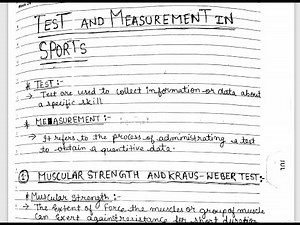 TEST AND MEASUREMENT IN
SPORTS
* TEST :-
→ Test are used to collect information or data about
a specific skill
* MEASUREMENT :-
→ It refers to the process of administrating a test
to obtain a quantitive data.
① MUSCULAR STRENGTH AND KRAUS-WEBER TEST:-
* Muscular Strength :-
→ The extent of force, the muscles or group of muscle
can exert against resistance for short duration